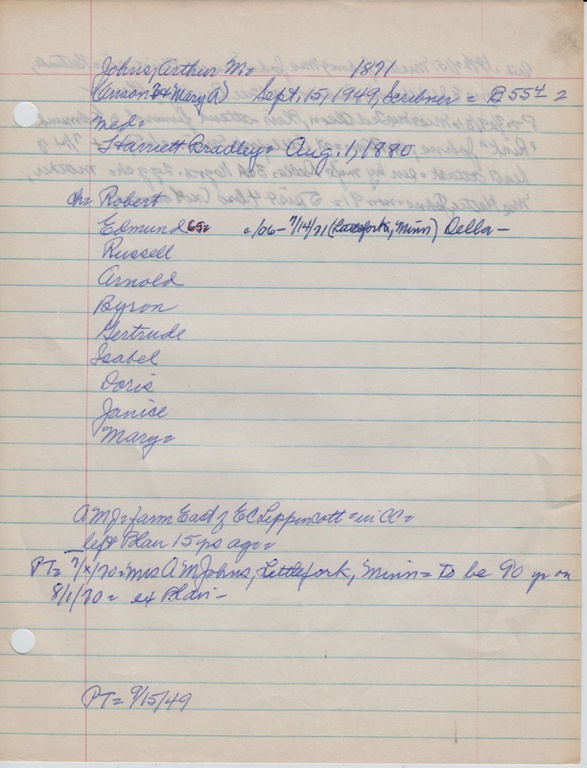 Johns, Arthur M = 1871
(Anson & Mary A) Sept, 15, 1949, Scribner = B 554 =
med =
Harriett Bradley = Aug. 1, 1880
ch = Robert
Edmund 65 = = /06 - 7/14/71 (Littlefork, Minn) Della -
Russell
Arnold
Byron
Gertrude
Isabel
Doris
Janice
Mary =
AMJ = farm East of EC Lippincott = in CC =
left Blair 15 yrs ago =
PT = 7/ /70 = Mrs A M Johns, Littlefork, Minn = to be 90 yr on
8/1/70 = ex Blair -
PT = 9/15/49